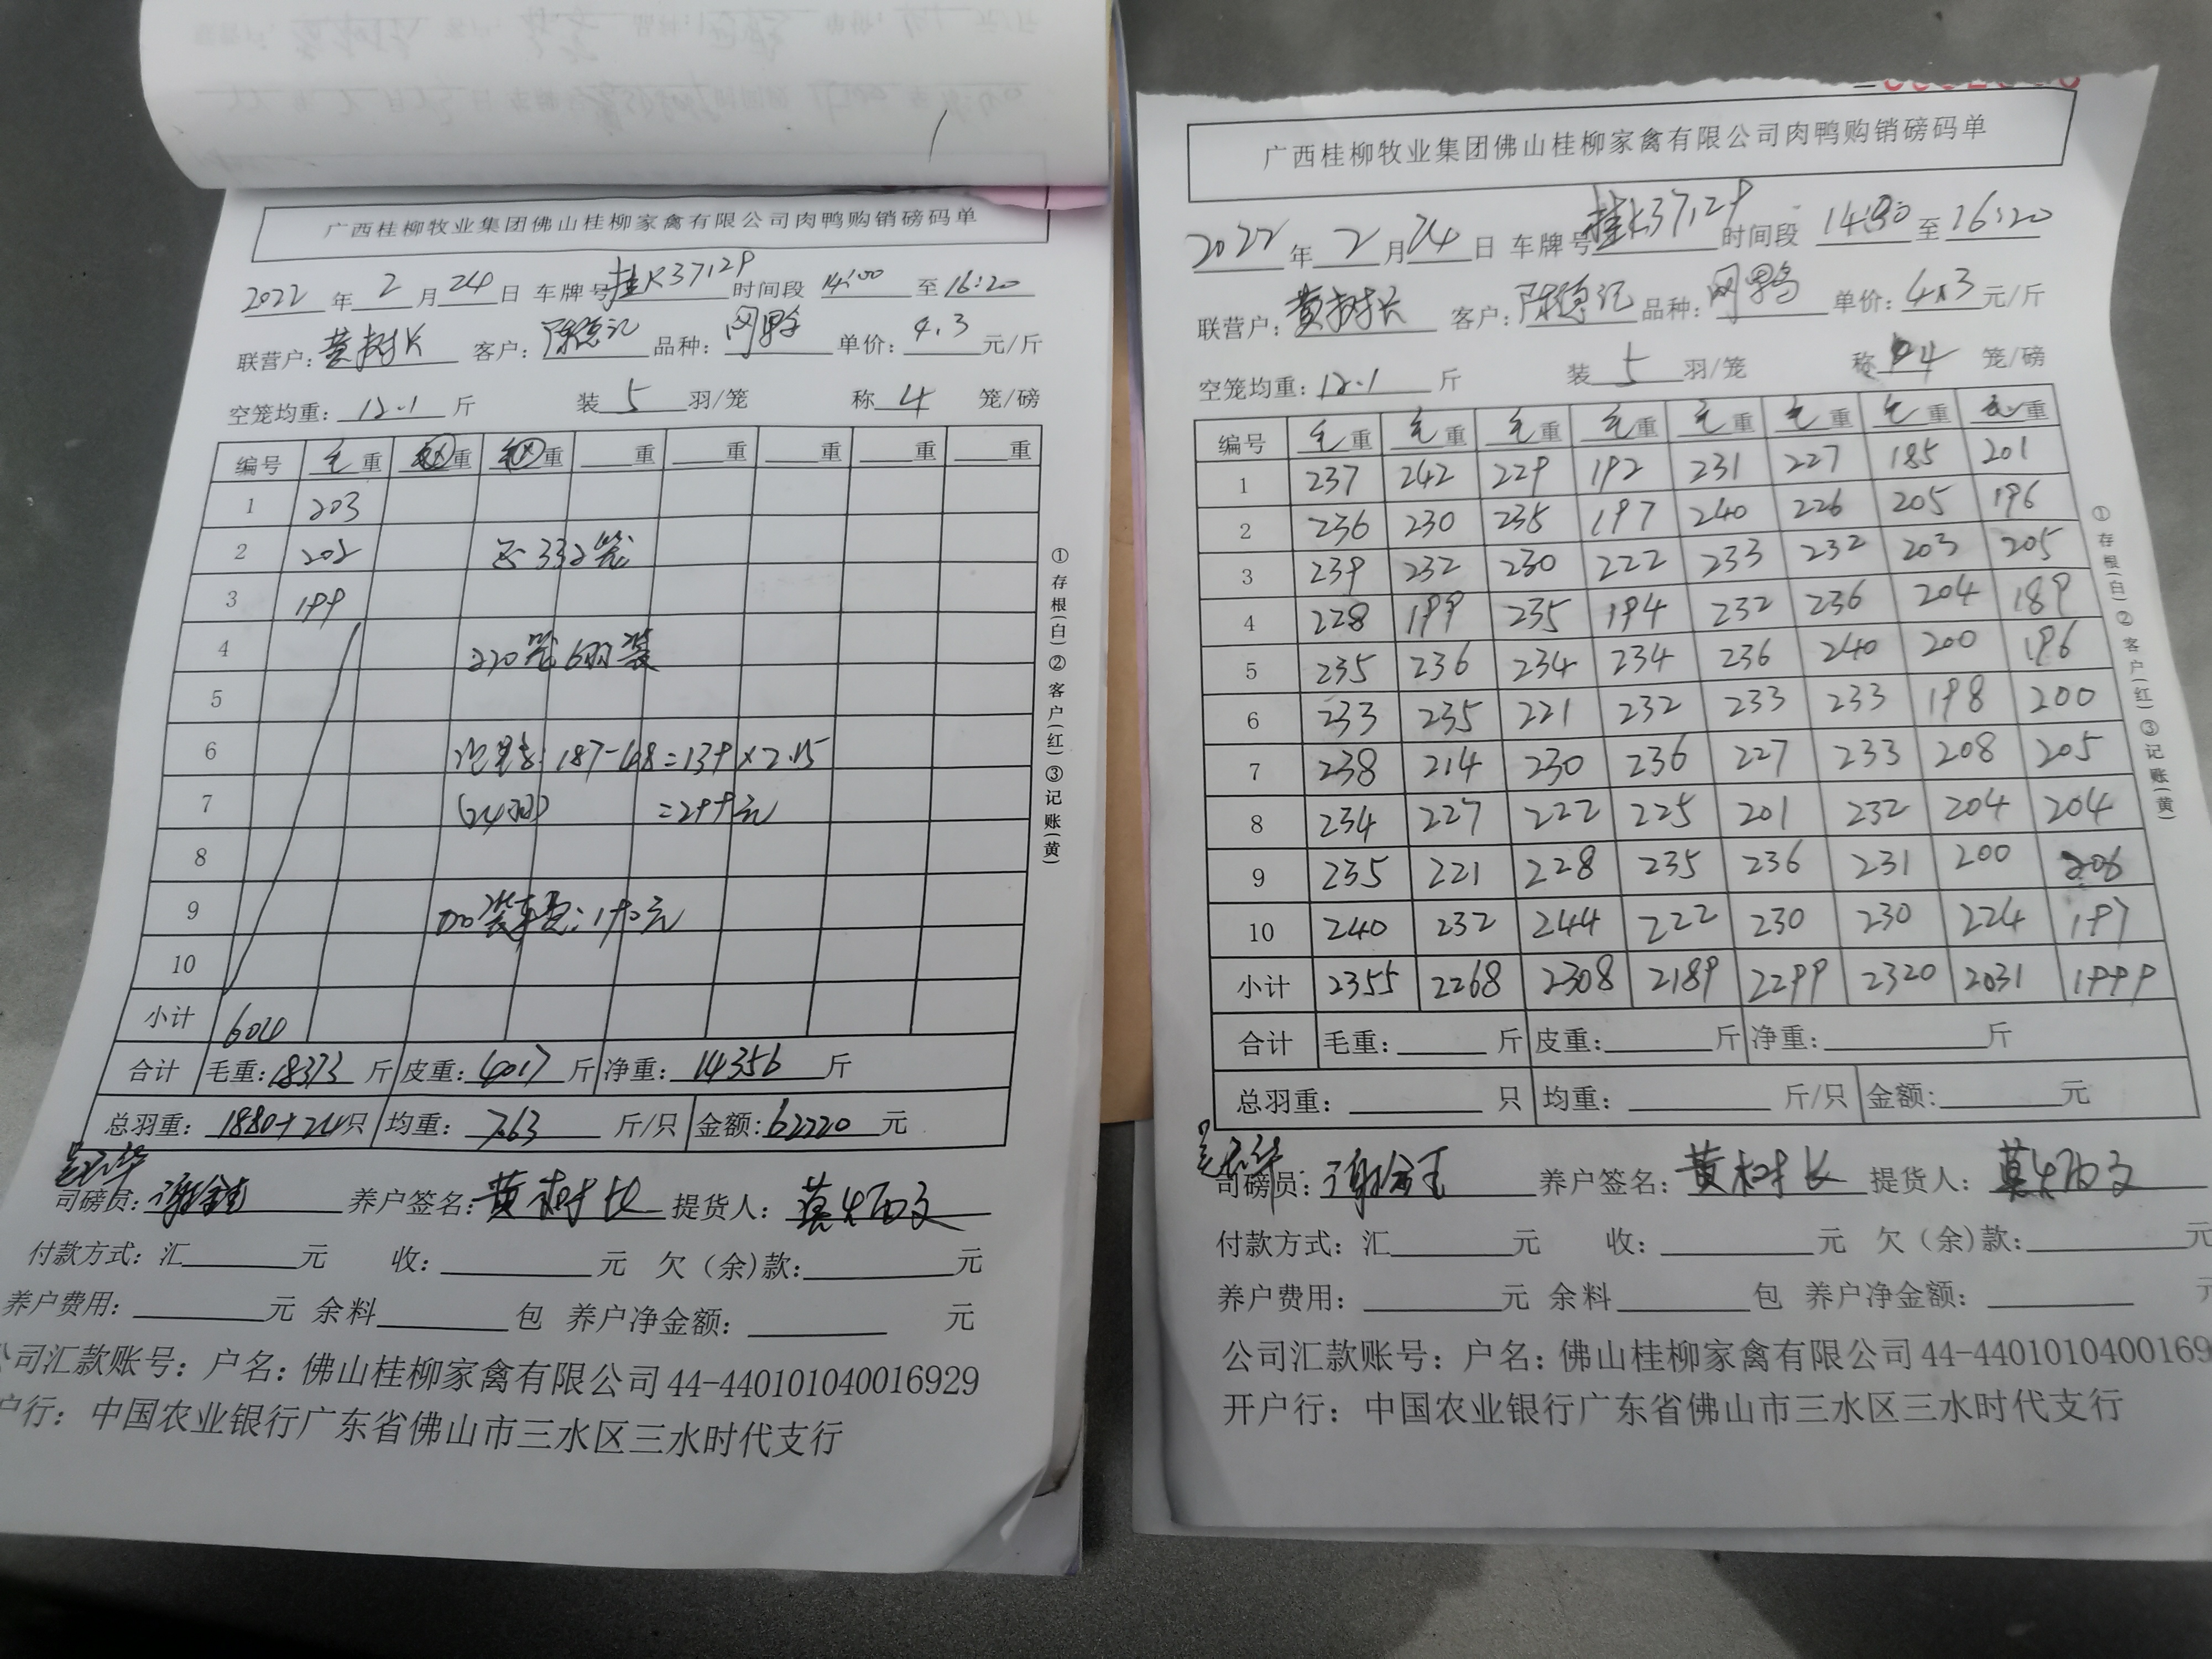 广西桂柳牧业集团佛山桂柳家禽有限公司肉鸭购销磅码单
2022 年 2 月 24 日 车牌号 桂K37129 时间段 14:00 至 16:20
联营户: 黄树长 客户: 陈德记 品种: 网鸭 单价: 4.3 元/斤
空笼均重: 12.1 斤 装 5 羽/笼 称 4 笼/磅
编号 毛重 重 重 重 重 重 重 重
1 203
2 202 332笼
3 199
4 220笼6羽装
5
6 187-48=139×2.15
7 (24羽) =299元
8
9 加装车费:190元
10
小计 604
合计 毛重: 18373 斤 皮重: 4017 斤 净重: 14356 斤
总羽重: 1880+24 只 均重: 7.63 斤/只 金额: 62220 元
司磅员: 养户签名: 黄树长 提货人: 莫炳文
付款方式: 汇 元 收: 元 欠(余)款: 元
养户费用: 元 余料 包 养户净金额: 元
公司汇款账号: 户名: 佛山桂柳家禽有限公司 44-440101040016929
户行: 中国农业银行广东省佛山市三水区三水时代支行
①存根(白)②客户(红)③记账(黄)
广西桂柳牧业集团佛山桂柳家禽有限公司肉鸭购销磅码单
2022 年 2 月 24 日 车牌号 桂K37129 时间段 14:00 至 16:20
联营户: 黄树长 客户: 陈德记 品种: 网鸭 单价: 4.3 元/斤
空笼均重: 12.1 斤 装 5 羽/笼 称 4 笼/磅
编号 毛重 毛重 毛重 毛重 毛重 毛重 毛重 毛重
1 237 242 229 192 231 227 185 201
2 236 230 235 197 240 226 205 196
3 239 232 230 222 233 232 203 205
4 228 199 235 194 232 236 204 189
5 235 236 234 234 236 240 200 196
6 233 235 221 232 233 233 198 200
7 238 214 230 236 227 233 208 205
8 234 227 222 225 201 232 204 204
9 235 221 228 235 236 231 200 206
10 240 232 244 222 230 230 224 197
小计 2355 2268 2308 2189 2299 2320 2031 1999
合计 毛重: 斤 皮重: 斤 净重: 斤
总羽重: 只 均重: 斤/只 金额: 元
司磅员: 养户签名: 黄树长 提货人: 莫炳文
付款方式: 汇 元 收: 元 欠(余)款: 元
养户费用: 元 余料 包 养户净金额:
公司汇款账号: 户名: 佛山桂柳家禽有限公司 44-4401010400169
开户行: 中国农业银行广东省佛山市三水区三水时代支行
①存根(白)②客户(红)③记账(黄)